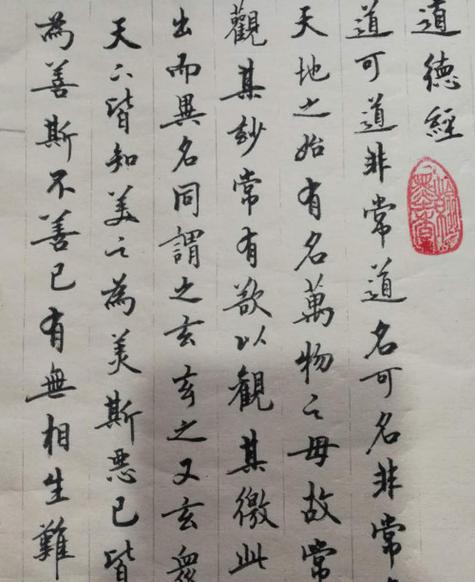 道德經
道可道非常道名可名非常
天地之始有名萬物之母故常
觀其妙常有欲以觀其徼此
出而異名同謂之玄玄之又玄衆
天下皆知美之為美斯惡已皆
為善斯不善已有無相生難